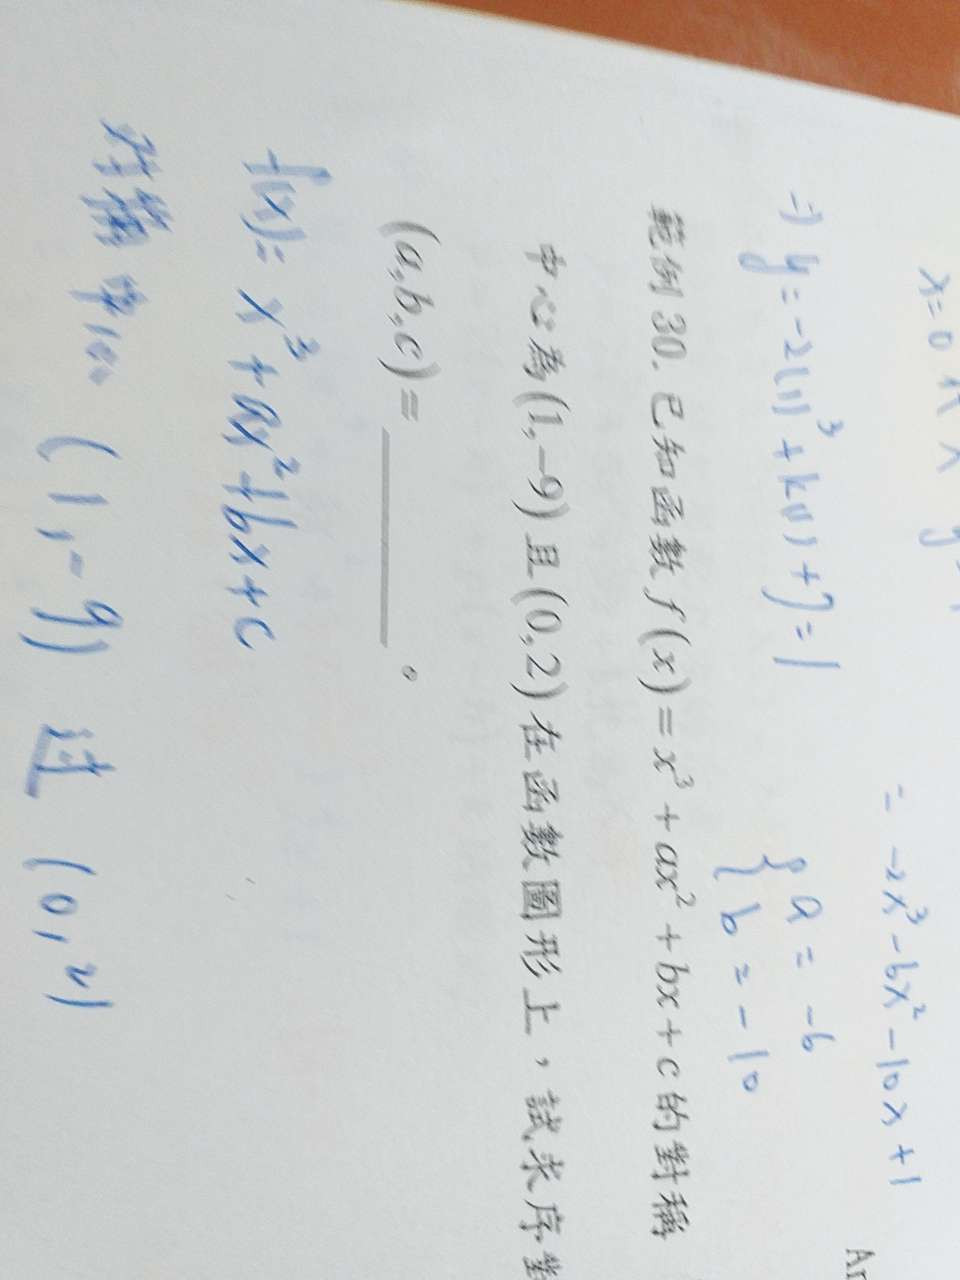 x=0
= -2x³-6x²-10x+1
=) y=-2(1)³+k(1)+7=1
{ a = -6
b = -10
範例30. 已知函數 f(x)=x³+ax²+bx+c 的對稱
中心為(1,-9)且(0,2)在函數圖形上，試求序對
(a,b,c)=______。
f(x)= x³+ax²+bx+c
对稱中心 (1,-9) 过 (0,2)